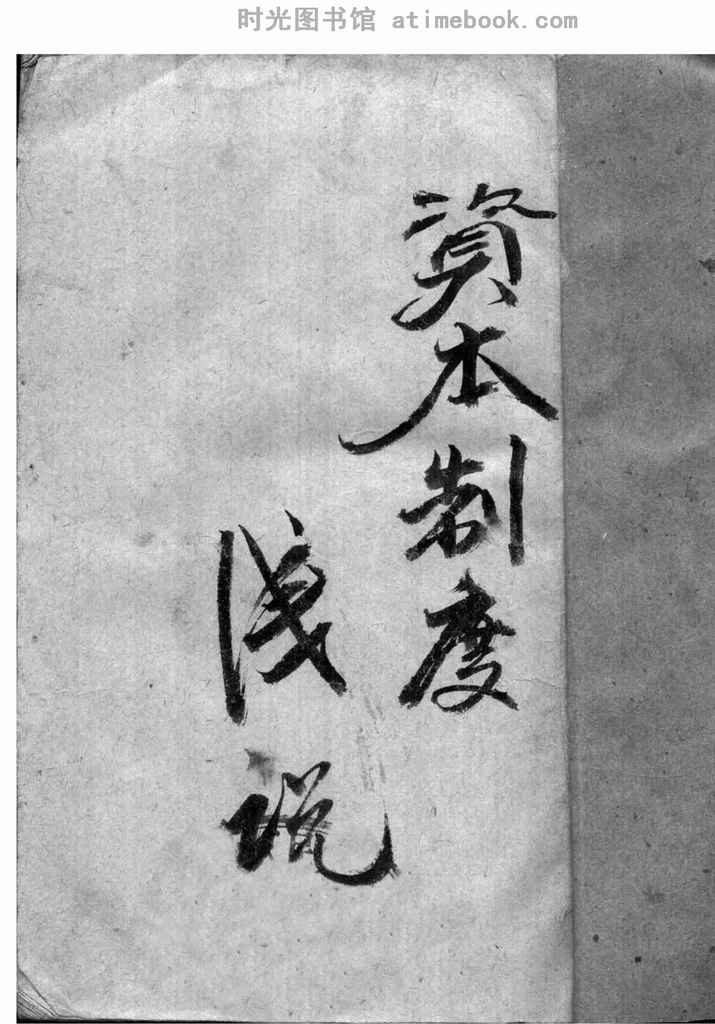 时光图书馆 atimebook.com
資本制度
浅説